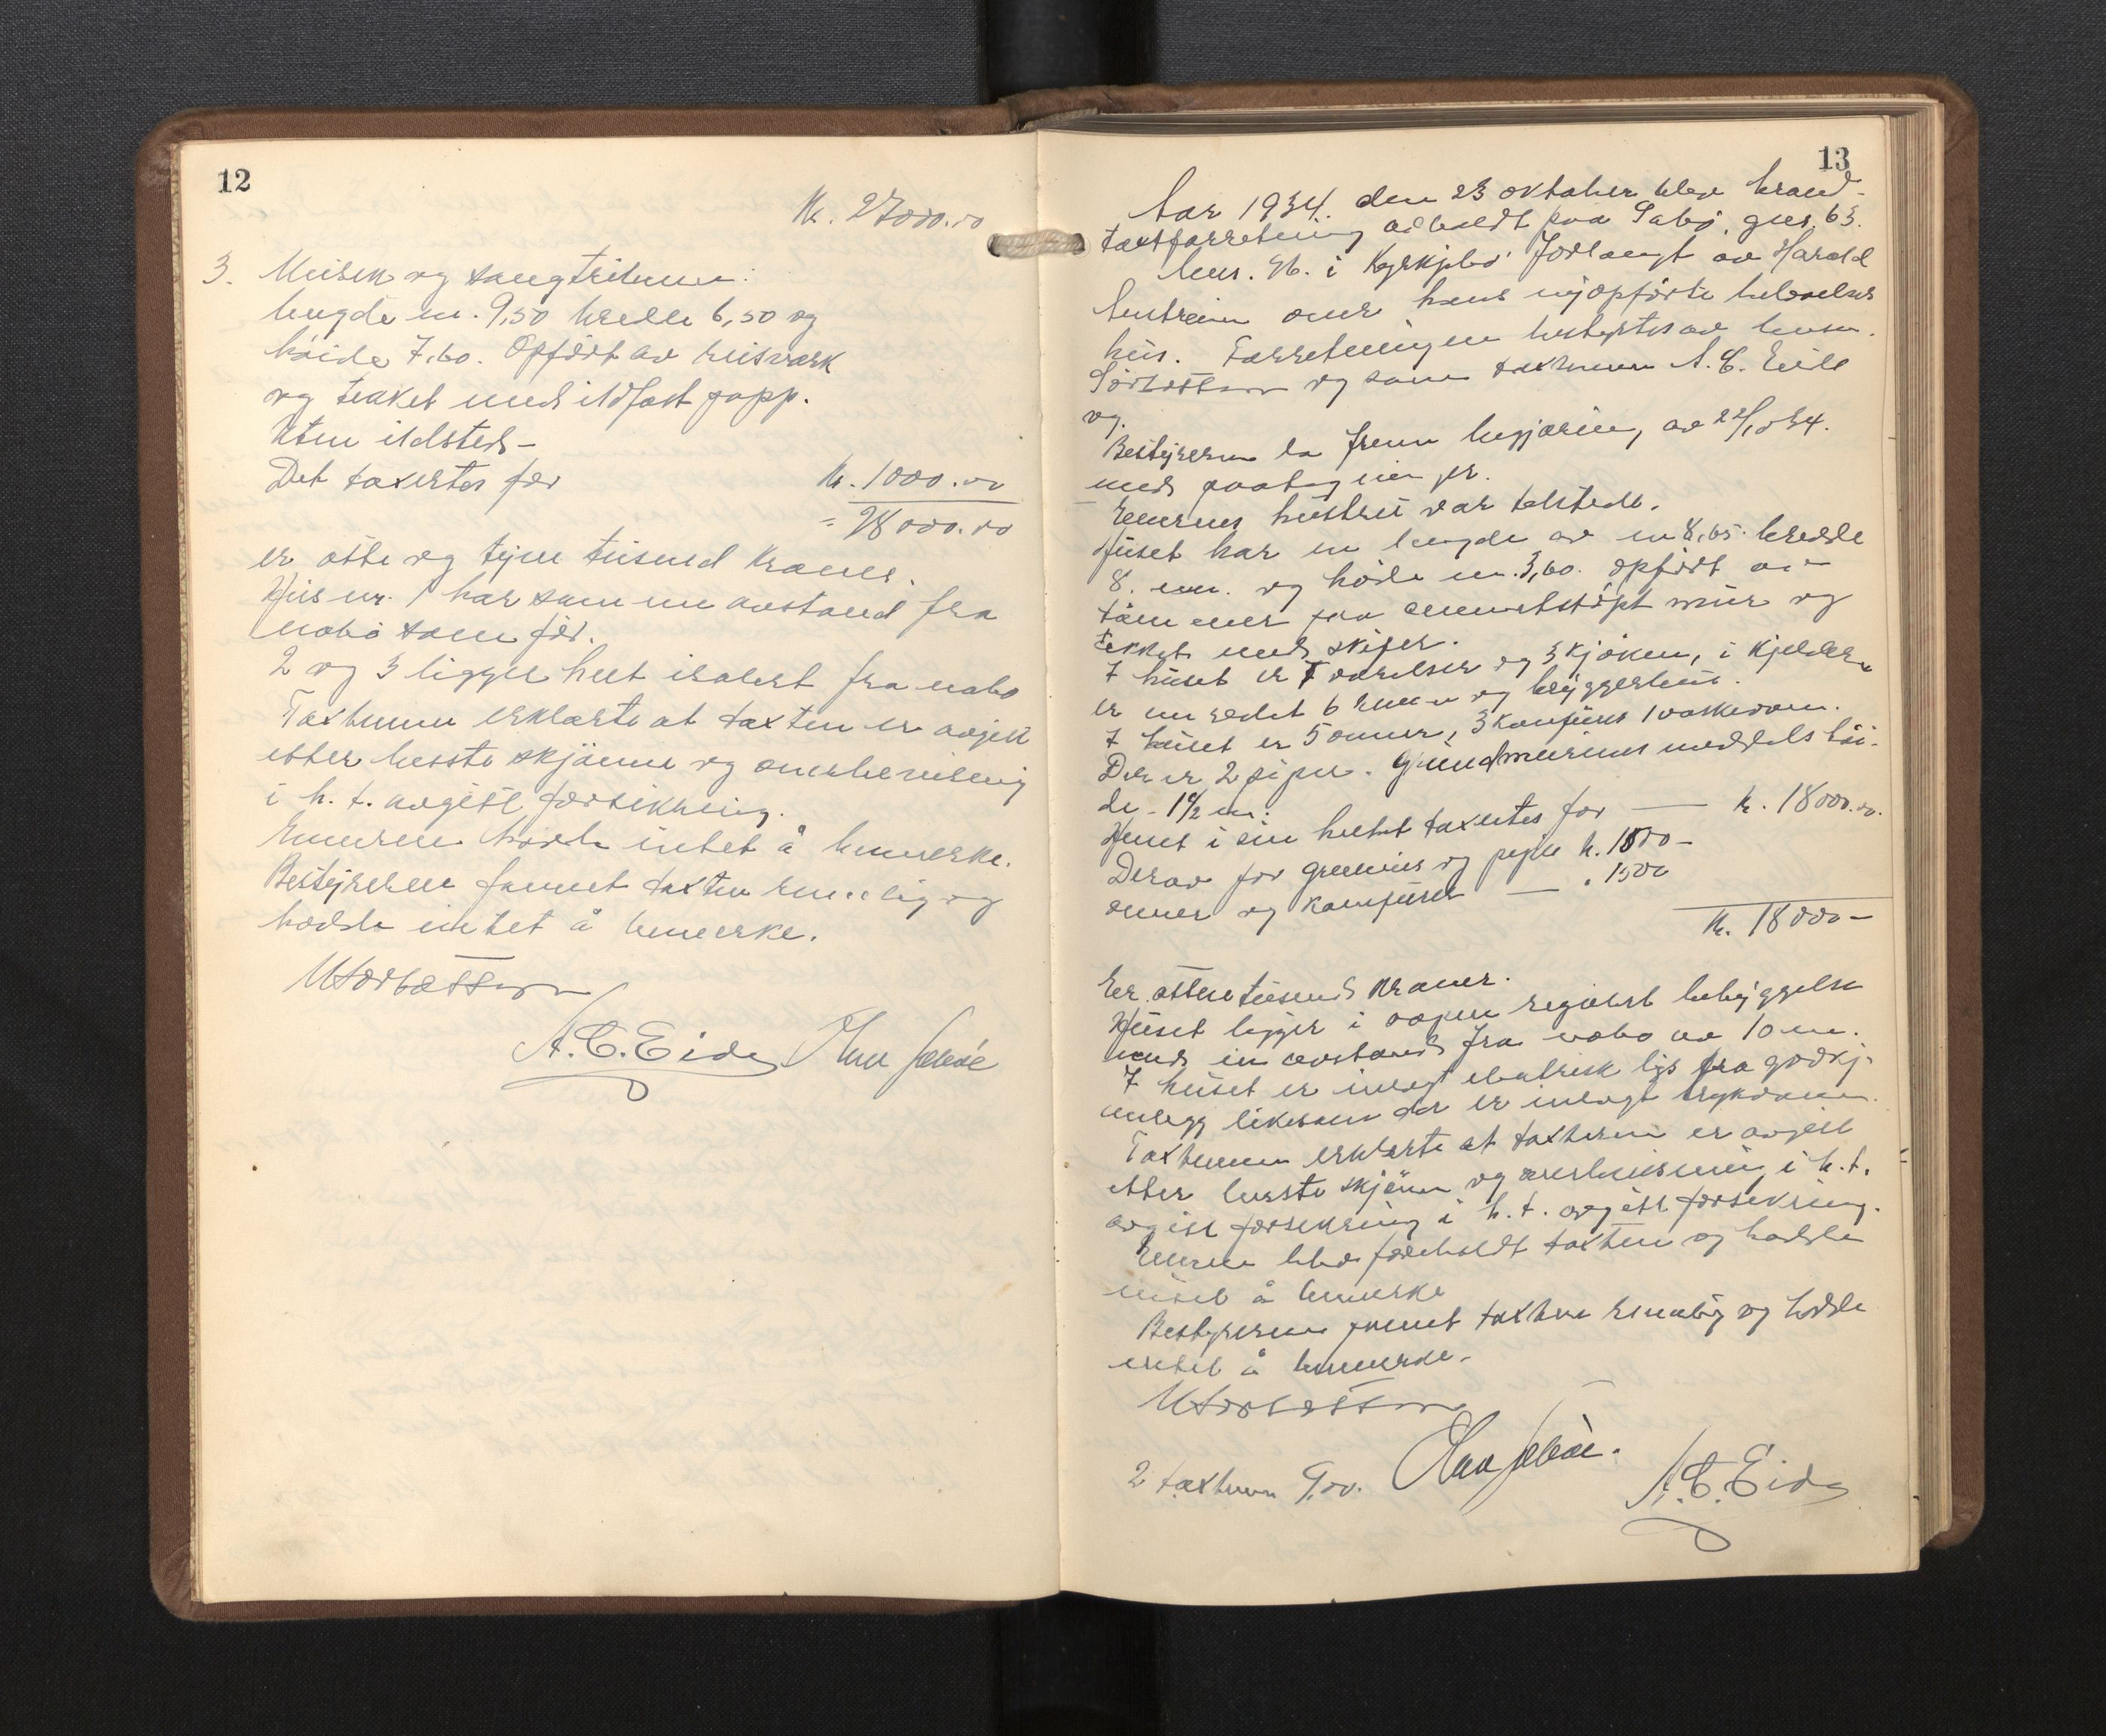 12
Kr. 27000.00
3. Musik og sangtribune:
lengde m. 9,50 bredde 6,50 og
höide 7,60. Opfört av reisverk
og tekket med ildfast papp.
Uten ildsted -
Det taxertes for kr. 1000.00
= 28000.00
er otte og tyve tusend kroner.
Hus nr. 1 har samme avstand fra
nabo som för.
2 og 3 ligger helt isolert fra nabo
Taxtmenn erklærte at taxten er avgitt
efter beste skjönn og overbevisning
i h. t. avgitt forsikring.
Eieren hadde intet å bemerke.
Bestyreren fannt taxten rimelig og
hadde intet å bemerke.
A. C. Eide
13
Aar 1934. den 23 oktober blev brand-
taxtforretning avholdt paa Sabö, gnr. 63.
bnr. i Kyrkjebö forlangt av Harald
Austreim over hans nyopförte beboelses
hus. Forretningen bestyrtes av lensm.
og som taxtmenn A. C. Eide
og
Bestyreren la frem begjæring av 22/10 34.
med paategninger.
Eierens hustru var tilstede.
Huset har en lengde av m 8,65. bredde
8. m. og höide m. 3,60. opfört av
tömmer paa cementstöpt mur og
tekket med skifer.
I huset er 7 værelser og 3 kjöken, i kjelderen
er inredet 6 rum og bryggerhus.
I huset er 5 ovner, 3 komfurer 1 vaskeovn.
Der er 2 piper. Grundmurens middels höi-
de - 1 1/2 m.
Huset i sin helhet taxertes for — kr. 18000.00.
Derav for grunmur og piper kr. 1800 -
ovner og komfurer — " 1500
kr. 18000 -
Er atten tusend kroner.
Huset ligger i aapen regulert bebyggelse
med en avstand fra nabo av 10 m.
I huset er inlagt elektrisk lys fra godkj.
anlegg likesom der er inlagt trykvann.
Taxtmenn erklærte at taxten er avgitt
efter beste skjönn og overbevisning i h. t.
avgitt forsikring i h. t. avgitt forsikring.
Eieren blev foreholdt taxten og hadde
intet å bemerke
Bestyreren fannt taxten rimelig og hadde
intet å bemerke.
2 taxtmenn 9.00.
A. C. Eide